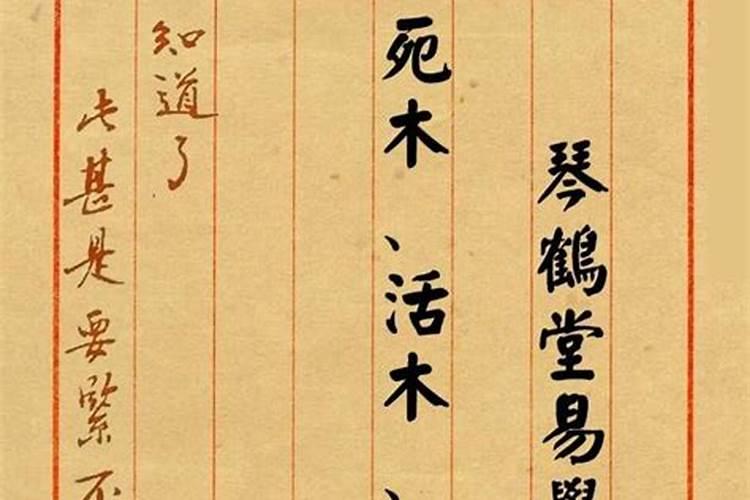 琴鶴堂易學
死木、活木、
知道了
此甚是要緊不